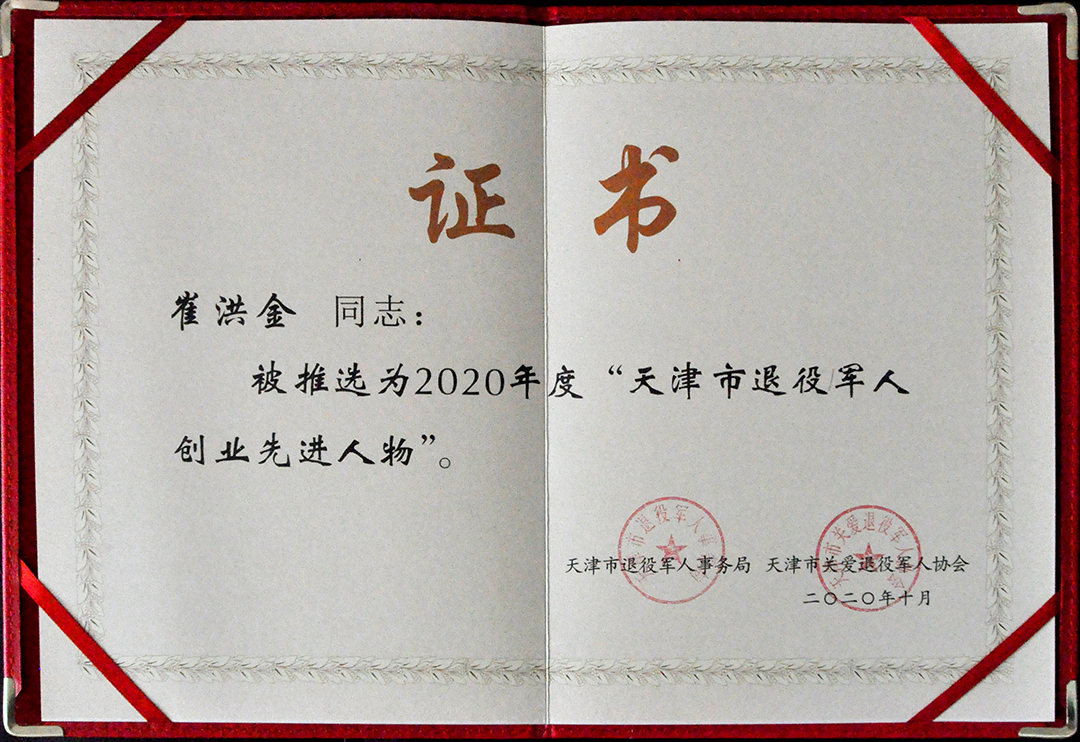 证书
崔洪金 同志：
被推选为2020年度“天津市退役军人
创业先进人物”。
天津市退役军人事务局 天津市关爱退役军人协会
二〇二〇年十月